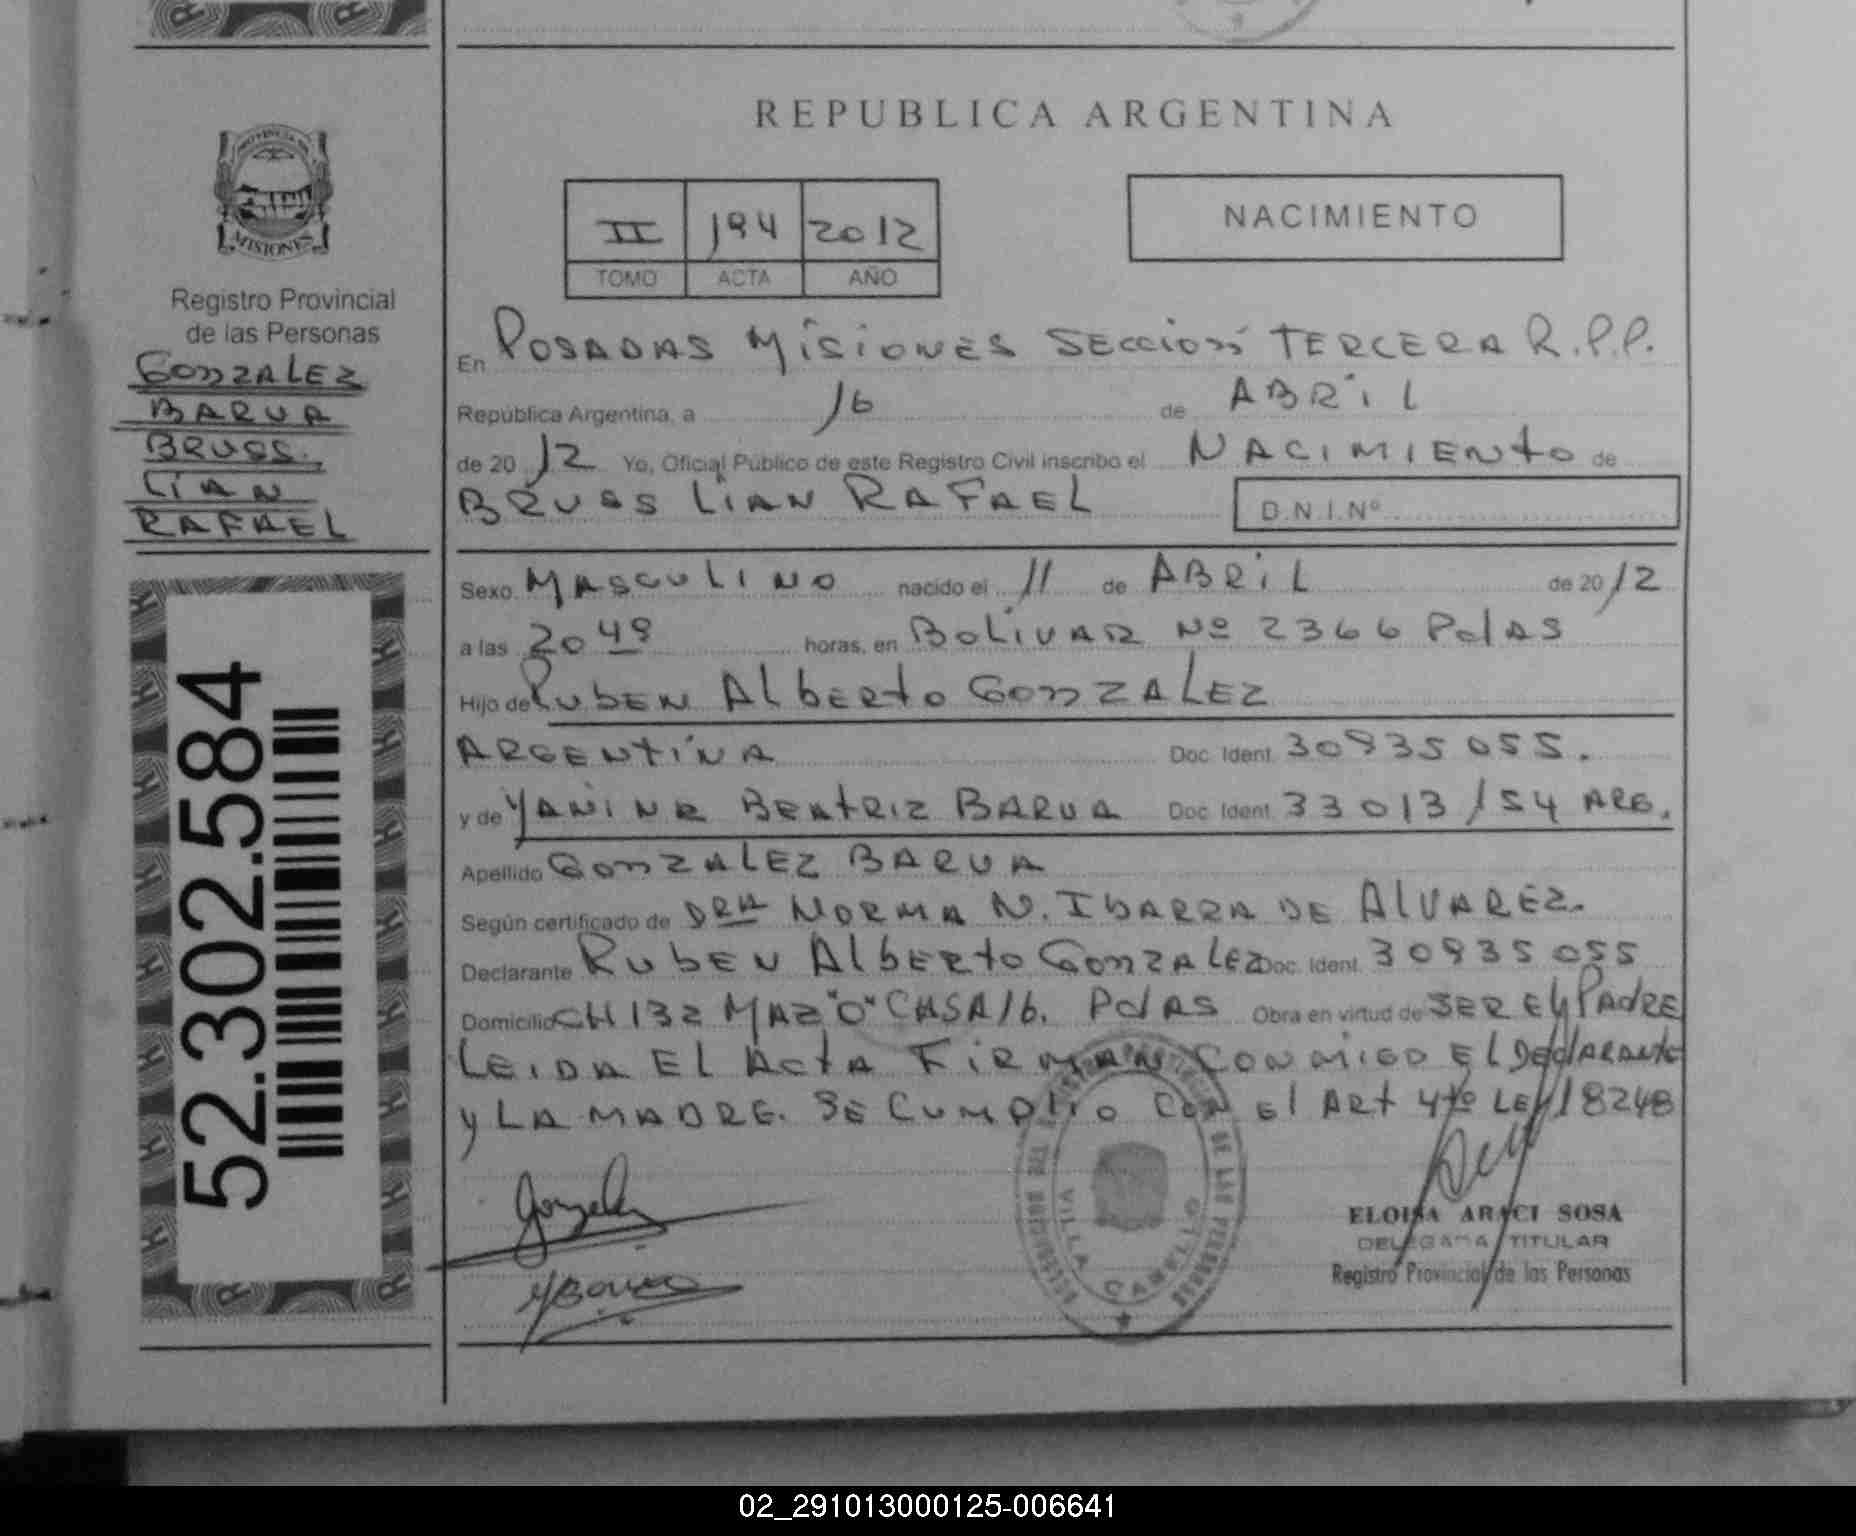 REPUBLICA ARGENTINA
II 194 2012
TOMO ACTA AÑO
NACIMIENTO
PROVINCIA DE
MISIONES
Registro Provincial
de las Personas
GONZALEZ
BARUA
BRUSS
LIAN
RAFAEL
52.302.584
En POSADAS MISIONES SECCION TERCERA R.P.P.
República Argentina, a 16 de ABRIL
de 20 12 Yo, Oficial Público de este Registro Civil inscribo el NACIMIENTO de
BRUSS LIAN RAFAEL D.N.I.Nº
Sexo MASCULINO nacido el 11 de ABRIL de 20 12
a las 20 48 horas, en BOLIVAR Nº 2366 PdAS
Hijo de RUBEN ALBERTO GONZALEZ
ARGENTINA Doc. Ident. 30935055.
y de YANINA BEATRIZ BARUA Doc. Ident. 33013154 ARG.
Apellido GONZALEZ BARUA
Según certificado de DRA NORMA N. IBARRA DE ALVAREZ.
Declarante RUBEN ALBERTO GONZALEZ Doc. Ident. 30935055
Domicilio CH 132 MAZ "O" CASA 16. PdAS Obra en virtud de SER EL PADRE
LEIDA EL ACTA FIRMAN CONMIGO EL DECLARANTE
Y LA MADRE. SE CUMPLIO CON EL ART 4to LEY 18248
Gonzalez
VILLA CABELLO
ELOISA ARACI SOSA
DELEGADA TITULAR
Registro Provincial de las Personas
02_291013000125-006641